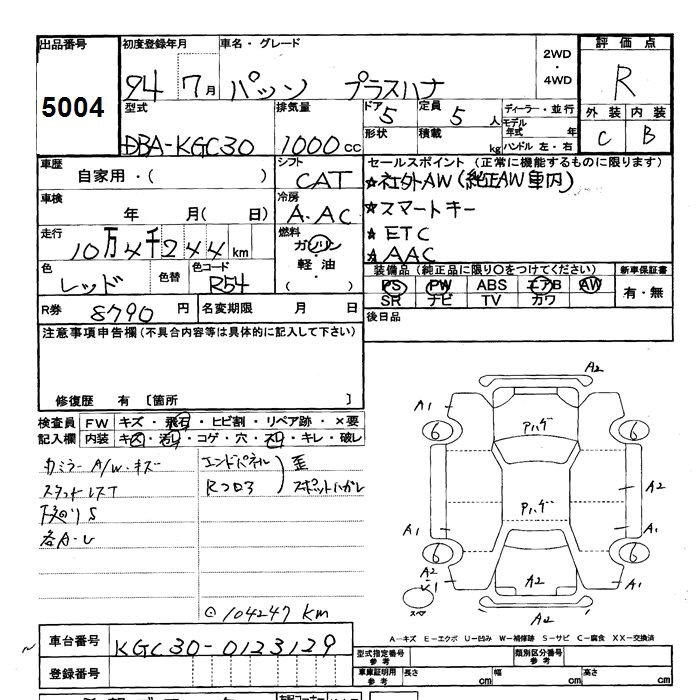 出品番号 初度登録年月 車名・グレード 2WD・4WD 評価点
5004 24 7月 パッソ プラスハナ R
型式 排気量 ドア 定員 ディーラー・並行 外装 内装
DBA-KGC30 1000cc 5 5人 モデル年式 年 C B
形状 積載 kg ハンドル 左・右
車歴 シフト セールスポイント(正常に機能するものに限ります)
自家用・( ) CAT ★社外AW(純正AW車内)
車検 冷房 ★スマートキー
年 月( 日) A.AC ★ETC
走行 燃料 ★AAC
10万4千244km ガソリン
色 色替 色コード 軽油・ 装備品(純正品に限り○をつけてください) 新車保証書
レッド R54 ( ) PS PW ABS エアB AW 有・無
SR ナビ TV カワ
R券 8790円 名変期限 月 日 後日品
注意事項申告欄(不具合内容等は具体的に記入して下さい)
修復歴 有 [箇所 ]
検査員 FW キズ・飛石・ヒビ割・リペア跡・×要
記入欄 内装 キズ・汚れ・コゲ・穴・スレ・キレ・破レ
カミラーA/W・キズ エンドパネル 歪
スタッドレスT Rフロア スポットハガレ
下廻りS
各A-U
⊙104247km
A2
A1 A1
6 6
Pハゲ
A2
Pハゲ
A1 A1
6 6
A2
A2
スペア
A2
A-キズ E-エクボ U-凹み W-補修跡 S-サビ C-腐食 XX-交換済
車台番号 KGC30-0123129 型式指定番号 参考 類別区分番号 参考
登録番号 車庫証明用 参考 長さ cm 幅 cm 高さ cm